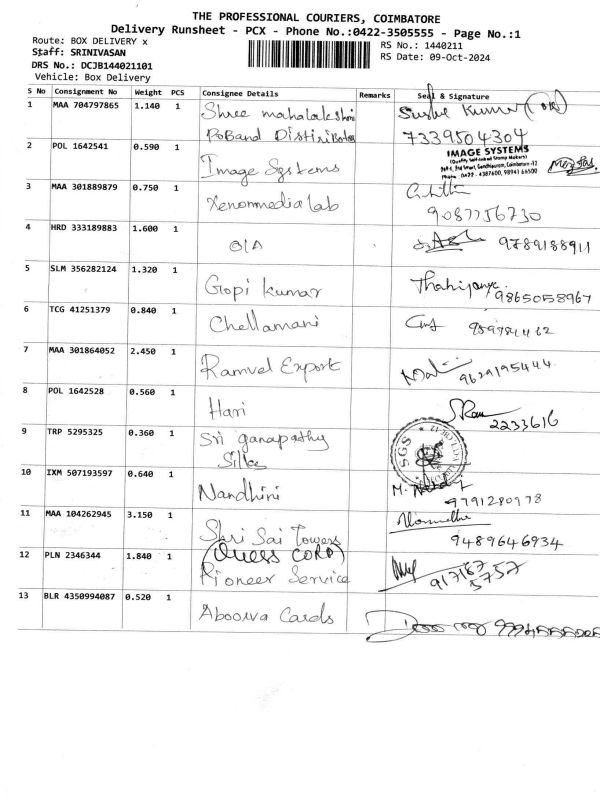 THE PROFESSIONAL COURIERS, COIMBATORE
Delivery Runsheet - PCX - Phone No.:0422-3505555 - Page No.:1
Route: BOX DELIVERY x
RS No.: 1440211
Staff: SRINIVASAN
RS Date: 09-Oct-2024
DRS No.: DCJB144021101
Vehicle: Box Delivery
S No Consignment No Weight PCS Consignee Details Remarks Seal & Signature
1 MAA 704797865 1.140 1 Shree mahalakshmi Kumar
7339504304
2 POL 1642541 0.590 1 Image Systems IMAGE SYSTEMS
3 MAA 301889879 0.750 1 Xenommedia lab
9087756730
4 HRD 333189883 1.600 1 O/A 9789188911
5 SLM 356282124 1.320 1 Gopi kumar 9865058967
6 TCG 41251379 0.840 1 Chellamani
7 MAA 301864052 2.450 1 Ramvel Export 9629195444
8 POL 1642528 0.560 1 Hari 2233616
9 TRP 5295325 0.360 1 Sri ganapathy SGS
Silks
10 IXM 507193597 0.640 1 Nandhini
9791280978
11 MAA 104262945 3.150 1 Shri Sai Towers
(Quess CORP) 9489646934
12 PLN 2346344 1.840 1 Pioneer Service
13 BLR 4350994087 0.520 1 Aboorva Cards